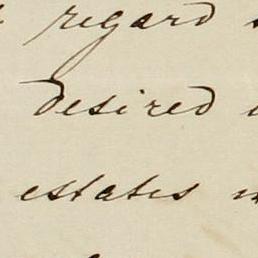 regard
desired
estates